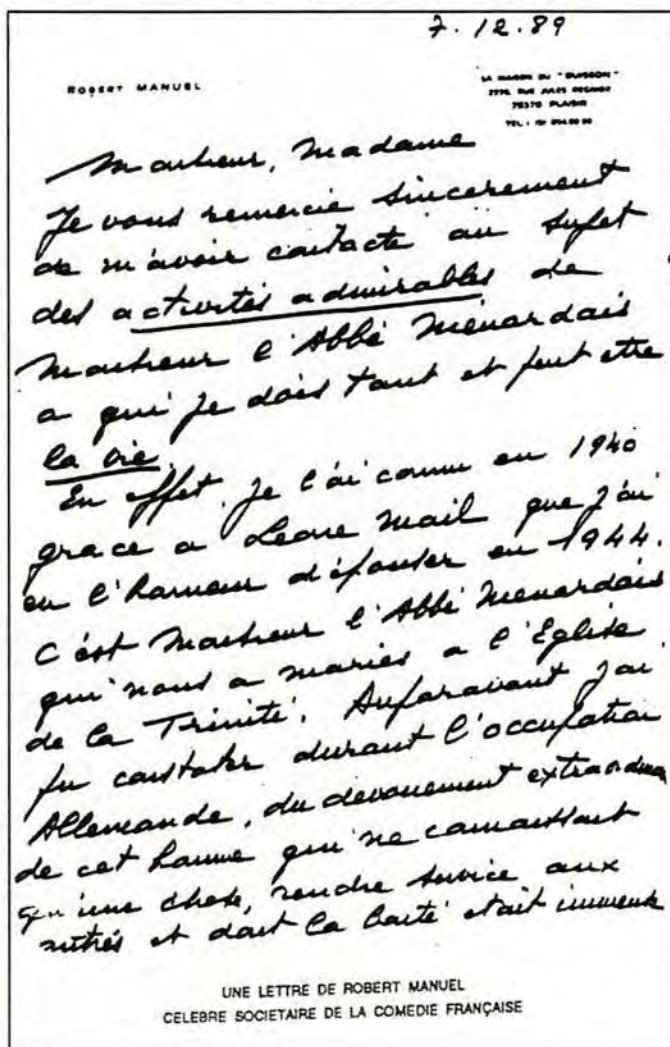 7.12.89
ROBERT MANUEL
LA MAISON DU "BUISSON"
RUE JULES REGNIER
78370 PLAISIR
TEL :
Monsieur, Madame
Je vous remercie sincerement
de m'avoir contacté au sujet
des activités admirables de
Monsieur l'Abbé Ménardais
a qui je dois tant et peut etre
la vie.
En effet, je l'ai connu en 1940
grace a Leone Mail que j'ai
eu l'honneur d'épouser en 1944.
C'est Monsieur l'Abbé Menardais
qui nous a mariés a l'Eglise
de la Trinité. Auparavant j'ai
pu constater durant l'occupation
Allemande, du devouement
de cet homme qui ne connaissant
qu'une chose, rendre service aux
autres et dont la bonté etait immense
UNE LETTRE DE ROBERT MANUEL
CELEBRE SOCIETAIRE DE LA COMEDIE FRANÇAISE